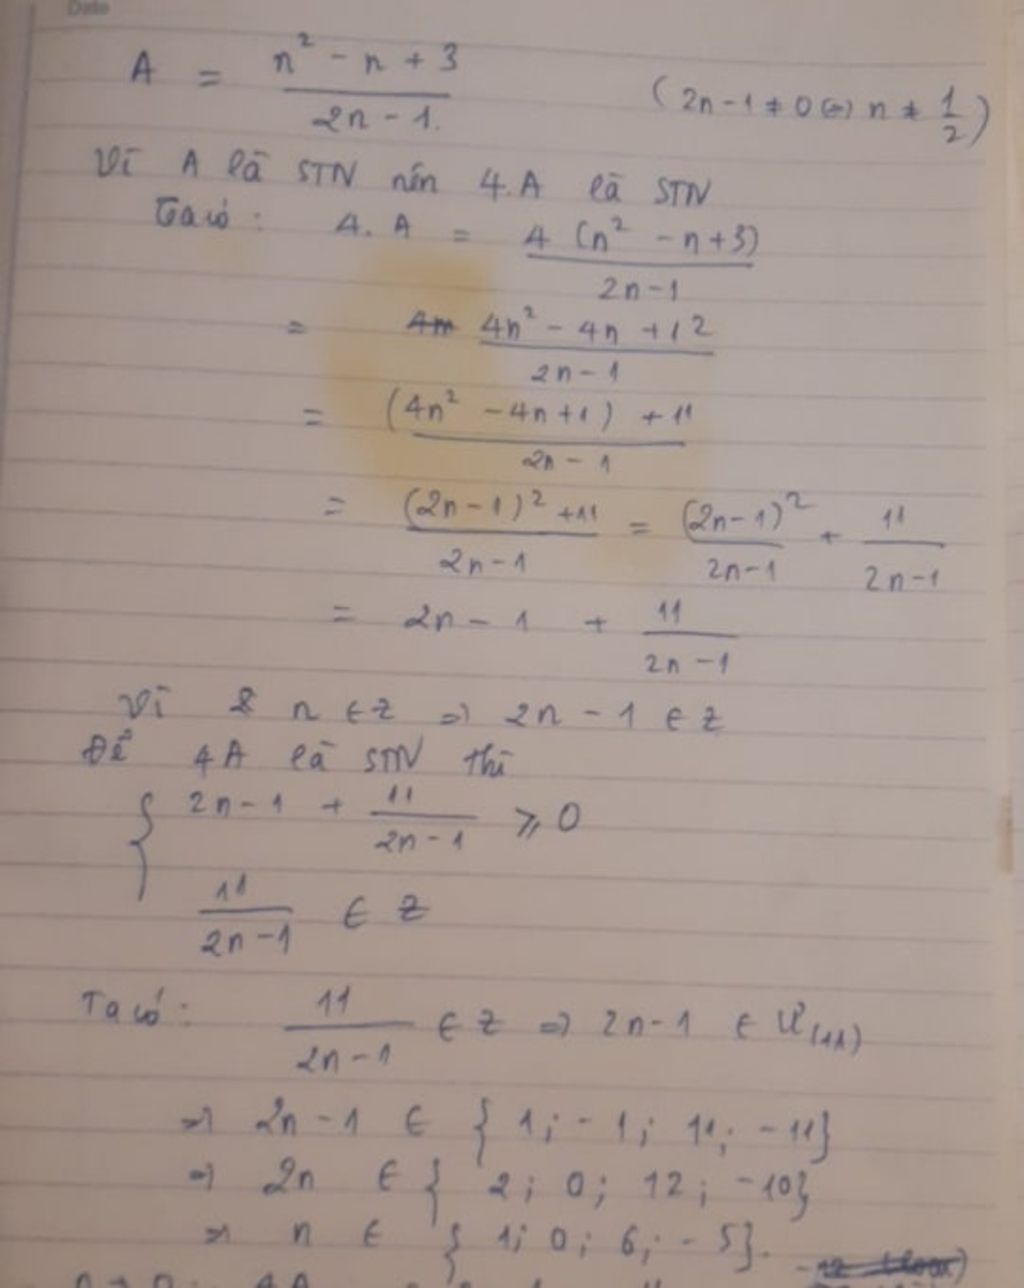 Date
A = (n² - n + 3)/(2n - 1) (2n - 1 ≠ 0 ⇔ n ≠ 1/2)
Vì A là STN nên 4.A là STN
Ta có: 4.A = 4(n² - n + 3)/(2n - 1)
= (4n² - 4n + 12)/(2n - 1)
= ((4n² - 4n + 1) + 11)/(2n - 1)
= ((2n - 1)² + 11)/(2n - 1) = (2n - 1)²/(2n - 1) + 11/(2n - 1)
= 2n - 1 + 11/(2n - 1)
Vì n ∈ Z ⇒ 2n - 1 ∈ Z
Để 4A là STN thì
{ 2n - 1 + 11/(2n - 1) ⩾ 0
11/(2n - 1) ∈ Z
Ta có: 11/(2n - 1) ∈ Z ⇒ 2n - 1 ∈ Ư(11)
⇒ 2n - 1 ∈ { 1; -1; 11; -11}
⇒ 2n ∈ { 2; 0; 12; -10}
⇒ n ∈ { 1; 0; 6; -5}.